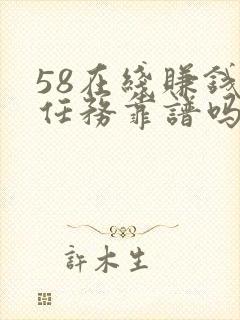 58在綫賺錢
任務靠譜嗎
許木生